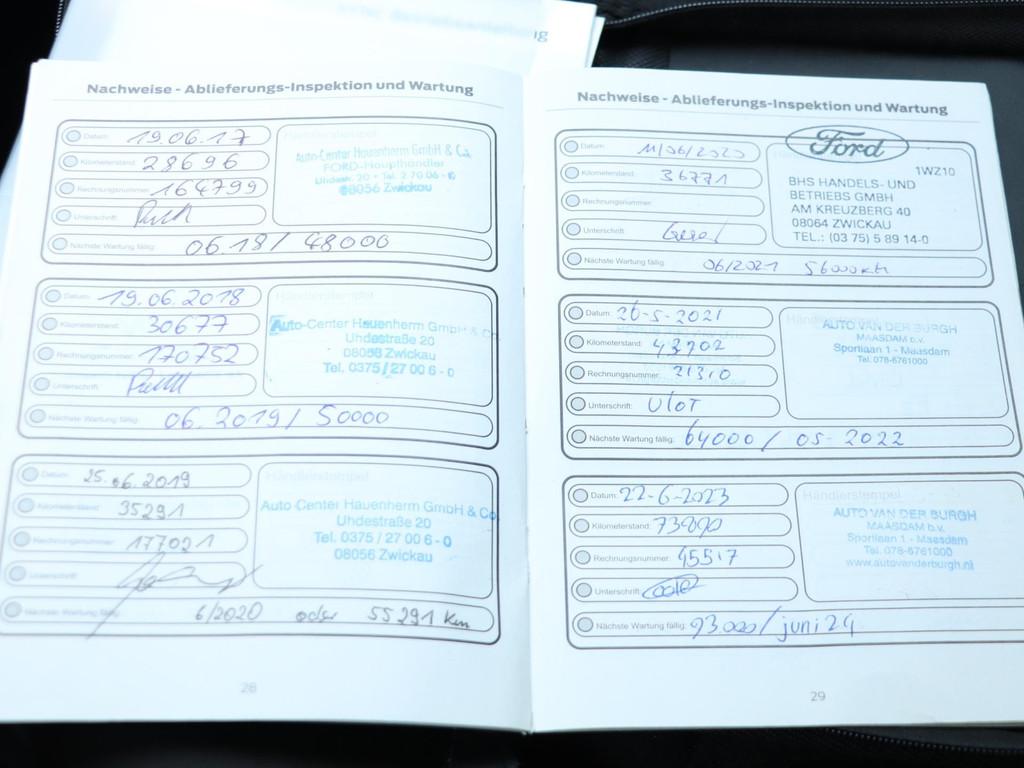 Nachweise - Ablieferungs-Inspektion und Wartung
Datum: 19.06.17
Kilometerstand: 28696
Rechnungsnummer: 164799
Unterschrift:
Nächste Wartung fällig: 06.18 / 48000
Händlerstempel
Auto-Center Hauenherm GmbH & Co.
FORD-Haupthändler
Uhdestr. 20 - Tel. 2 70 06 - 0
08056 Zwickau
Datum: 19.06.2018
Kilometerstand: 30677
Rechnungsnummer: 170752
Unterschrift:
Nächste Wartung fällig: 06.2019 / 50000
Händlerstempel
Auto-Center Hauenherm GmbH & Co.
Uhdestraße 20
08056 Zwickau
Tel. 0375 / 27 00 6 - 0
Datum: 25.06.2019
Kilometerstand: 35291
Rechnungsnummer: 177021
Unterschrift:
Nächste Wartung fällig: 6/2020 oder 55291 km
Händlerstempel
Auto Center Hauenherm GmbH & Co.
Uhdestraße 20
Tel. 0375 / 27 00 6 - 0
08056 Zwickau
28
Nachweise - Ablieferungs-Inspektion und Wartung
Datum: 11/06/2020
Kilometerstand: 36771
Rechnungsnummer:
Unterschrift:
Nächste Wartung fällig: 06/2021 56000km
Ford
1WZ10
BHS HANDELS- UND
BETRIEBS GMBH
AM KREUZBERG 40
08064 ZWICKAU
TEL.: (03 75) 5 89 14-0
Datum: 26-5-2021
Kilometerstand: 43902
Rechnungsnummer: 21310
Unterschrift: Vlot
Nächste Wartung fällig: 64000 / 05-2022
Händlerstempel
AUTO VAN DER BURGH
MAASDAM b.v.
Sportlaan 1 - Maasdam
Tel. 078-6761000
Datum: 22-6-2023
Kilometerstand: 73000
Rechnungsnummer: 45517
Unterschrift:
Nächste Wartung fällig: 93.000 / juni 24
Händlerstempel
AUTO VAN DER BURGH
MAASDAM b.v.
Sportlaan 1 - Maasdam
Tel. 078-6761000
www.autovanderburgh.nl
29